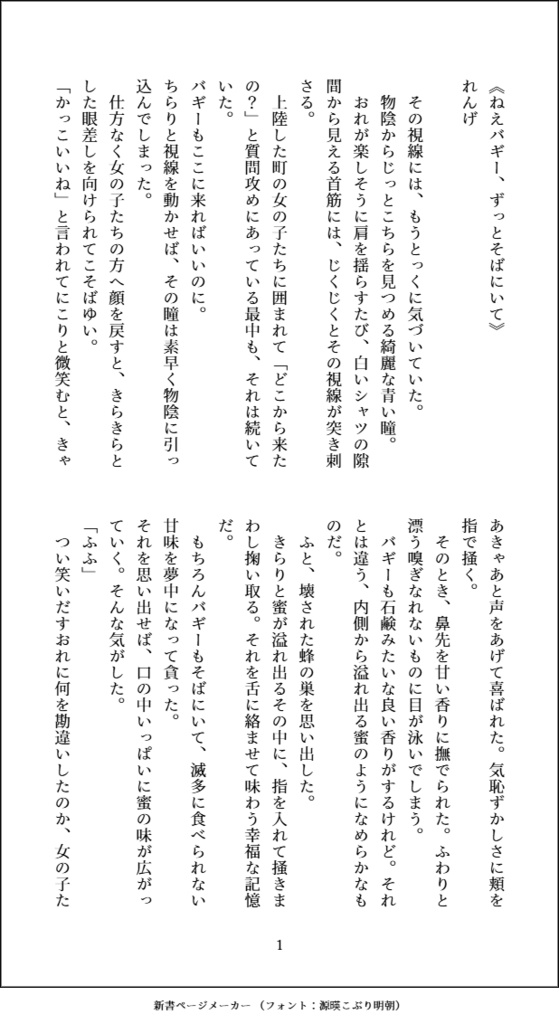 《ねえバギー、ずっとそばにいて》
れんげ
その視線には、もうとっくに気づいていた。
物陰からじっとこちらを見つめる綺麗な青い瞳。
おれが楽しそうに肩を揺らすたび、白いシャツの隙
間から見える首筋には、じくじくとその視線が突き刺
さる。
上陸した町の女の子たちに囲まれて「どこから来た
の？」と質問攻めにあっている最中も、それは続いて
いた。
バギーもここに来ればいいのに。
ちらりと視線を動かせば、その瞳は素早く物陰に引っ
込んでしまった。
仕方なく女の子たちの方へ顔を戻すと、きらきらと
した眼差しを向けられてこそばゆい。
「かっこいいね」と言われてにこりと微笑むと、きゃ
あきゃあと声をあげて喜ばれた。気恥ずかしさに頬を
指で掻く。
そのとき、鼻先を甘い香りに撫でられた。ふわりと
漂う嗅ぎなれないものに目が泳いでしまう。
バギーも石鹸みたいな良い香りがするけれど。それ
とは違う、内側から溢れ出る蜜のようになめらかなも
のだ。
ふと、壊された蜂の巣を思い出した。
きらりと蜜が溢れ出るその中に、指を入れて掻きま
わし掬い取る。それを舌に絡ませて味わう幸福な記憶
だ。
もちろんバギーもそばにいて、滅多に食べられない
甘味を夢中になって貪った。
それを思い出せば、口の中いっぱいに蜜の味が広がっ
ていく。そんな気がした。
「ふふ」
つい笑いだすおれに何を勘違いしたのか、女の子た
1
新書ページメーカー（フォント：源暎こぶり明朝）